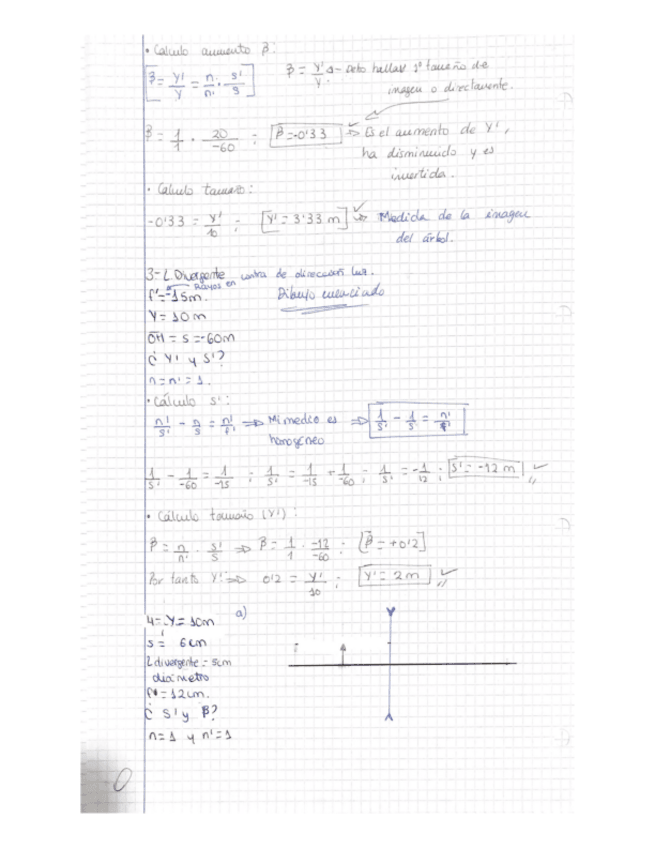 • Calculo aumento β:
β = y'/y = n/n' · s'/s    β = y'/y Δ- Debo hallar 1º tamaño de
imagen o directamente.
β = 1/1 · 20/-60 ; β = -0'33 ⇒ Es el aumento de Y',
ha disminuido y es
invertida.
• Calculo tamaño:
-0'33 = Y'/10 ; Y' = 3'33 m ⇒ Medida de la imagen
del árbol.
3- L. Divergente contra de dirección luz.
Rayos en
f' = -15m.    Dibujo enunciado
Y = 10 m
OH = s = -60m
¿ Y' y S'?
n = n' = 1.
• Cálculo s':
n'/s' - n/s = n'/f' ⇒ Mi medio es ⇒ 1/s' - 1/s = n'/f'
homogéneo
1/s' - 1/-60 = 1/-15 ; 1/s' = 1/-15 + 1/-60 ; 1/s' = -1/12 ; S' = -12 m
• Cálculo tamaño (Y'):
β = n/n' · s'/s ⇒ β = 1/1 · -12/-60 ; [β = +0'2]
Por tanto Y' ⇒ 0'2 = Y'/10 ; Y' = 2m
4- Y = 1cm    a)
s = 6cm
L divergente = 5cm
diámetro
f' = 12cm.
¿ S' y β?
n = 1 y n' = 1